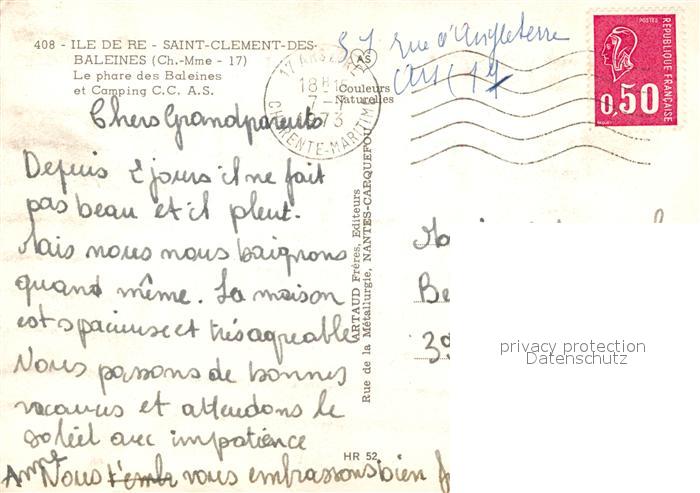 408 - ILE DE RE - SAINT-CLEMENT-DES-
BALEINES (Ch.-Mme - 17)
Le phare des Baleines
et Camping C.C. A.S.
AS
Couleurs
Naturelles
57 rue d'Angleterre
17 ARS EN RE
18H15
7-7
1973
CHARENTE-MARITIME
POSTES
REPUBLIQUE FRANÇAISE
0,50
Chers Grandparents
Depuis 2 jours il ne fait
pas beau et il pleut.
Mais nous nous baignons
quand même. La maison
est spacieuse et très agreable
Nous passons de bonnes
vacances et attendons le
soleil avec impatience
Nous vous embrassons bien
ARTAUD Frères, Editeurs
Rue de la Métallurgie, NANTES-CARQUEFOU
HR 52
Be
39
privacy protection
Datenschutz